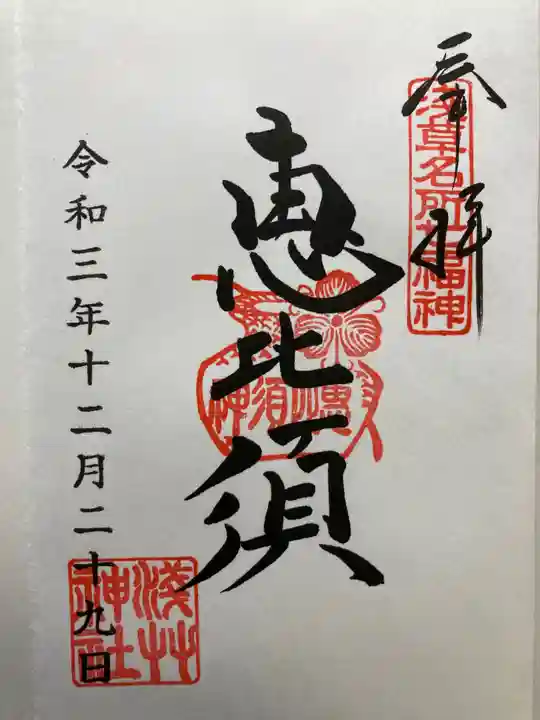 奉拝
浅草名所七福神
恵比須
令和三年十二月二十九日
浅草神社